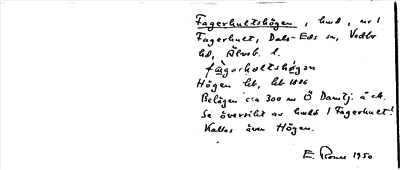 Fagerhultshögen, hmd, nr 1
Fagerhult, Dals-Eds sn, Vedbo
hd, Älvsb. l.
fàgorholtshö̀gan
Högen lht, lht 1886
Belägen c:a 300 m Ö Damtj. å ek.
Se översikt av hmdt i Fagerhult!
Kallas även Högen.
E. 1950